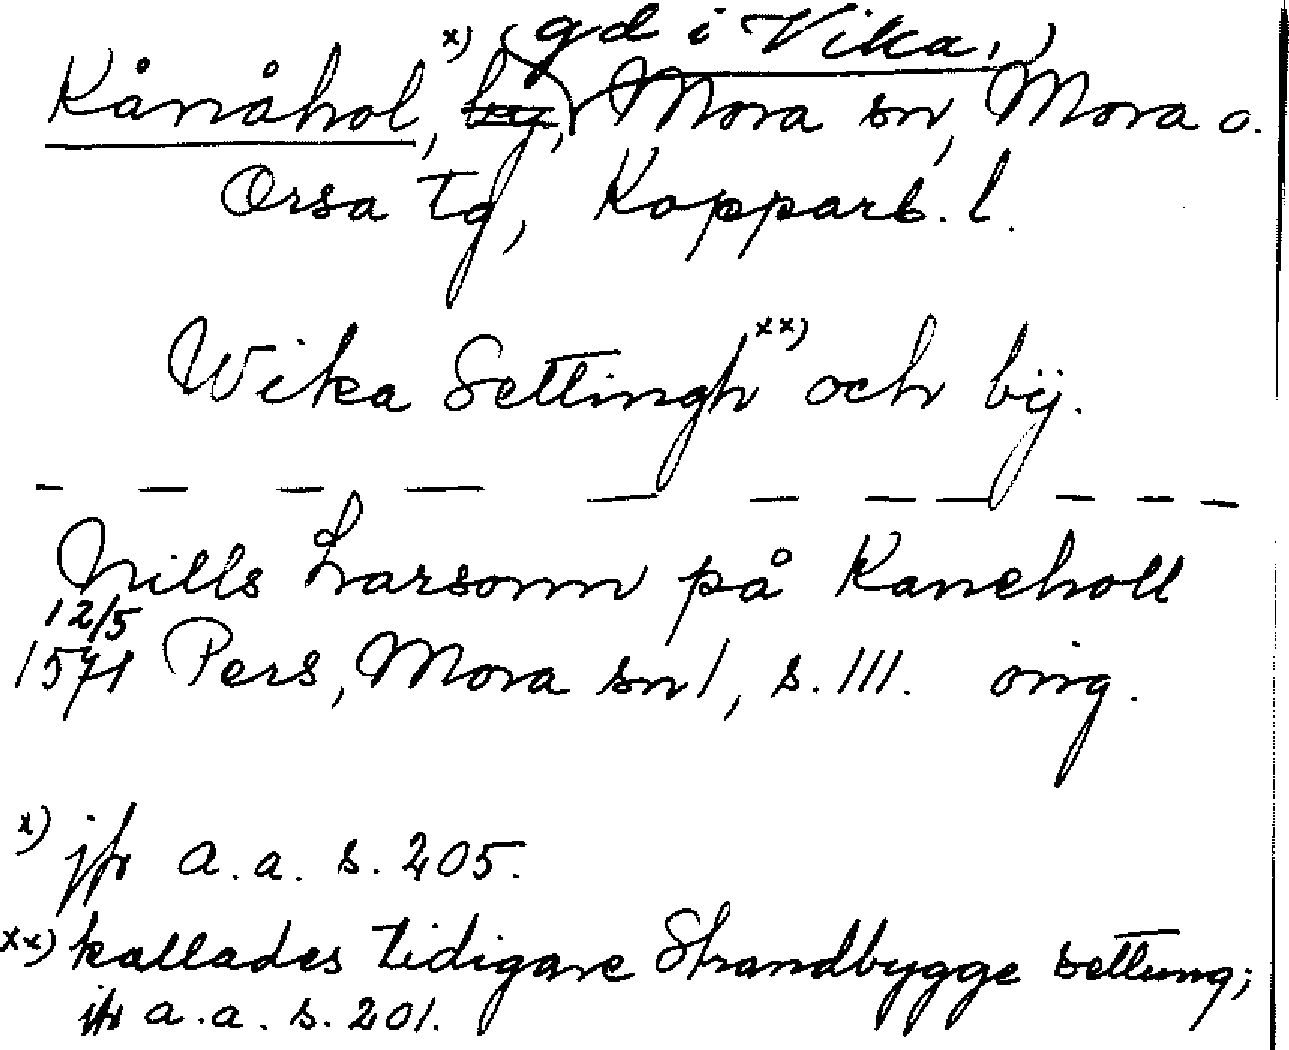 x) (gd i Vika.)
Kånåhol, by, Mora sn, Mora o.
Orsa tg, Kopparb. l.
Wika Settingh xx) och bÿ.
— — — — — — — — — — —
Nills Larsonn på Kaneholl
12/5
1571 Pers, Mora sn 1, s. 111. orig.
x) jfr a.a. s. 205.
xx) kallades tidigare Strandbygge settung;
jfr a.a. s. 201.